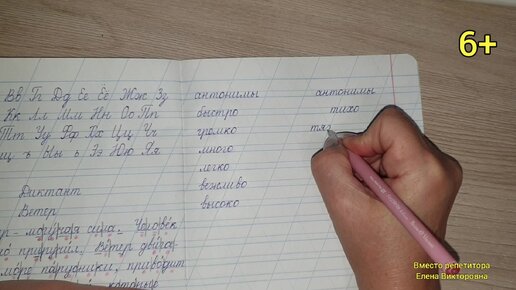 6+
Вв Гг Дд Ее Ёё Жж Зз
Кк Лл Мм Нн Оо Пп
Тт Уу Фф Хх Цц Чч
щ ъ Ыы ь Ээ Юю Яя
Диктант
Ветер
ер – могучая сила. Человек
приручил. Ветер двига-
море парусники, приводит
которые
антонимы
быстро
громко
много
легко
вежливо
высоко
антонимы
тихо
тя
Вместо репетитора
Елена Викторовна